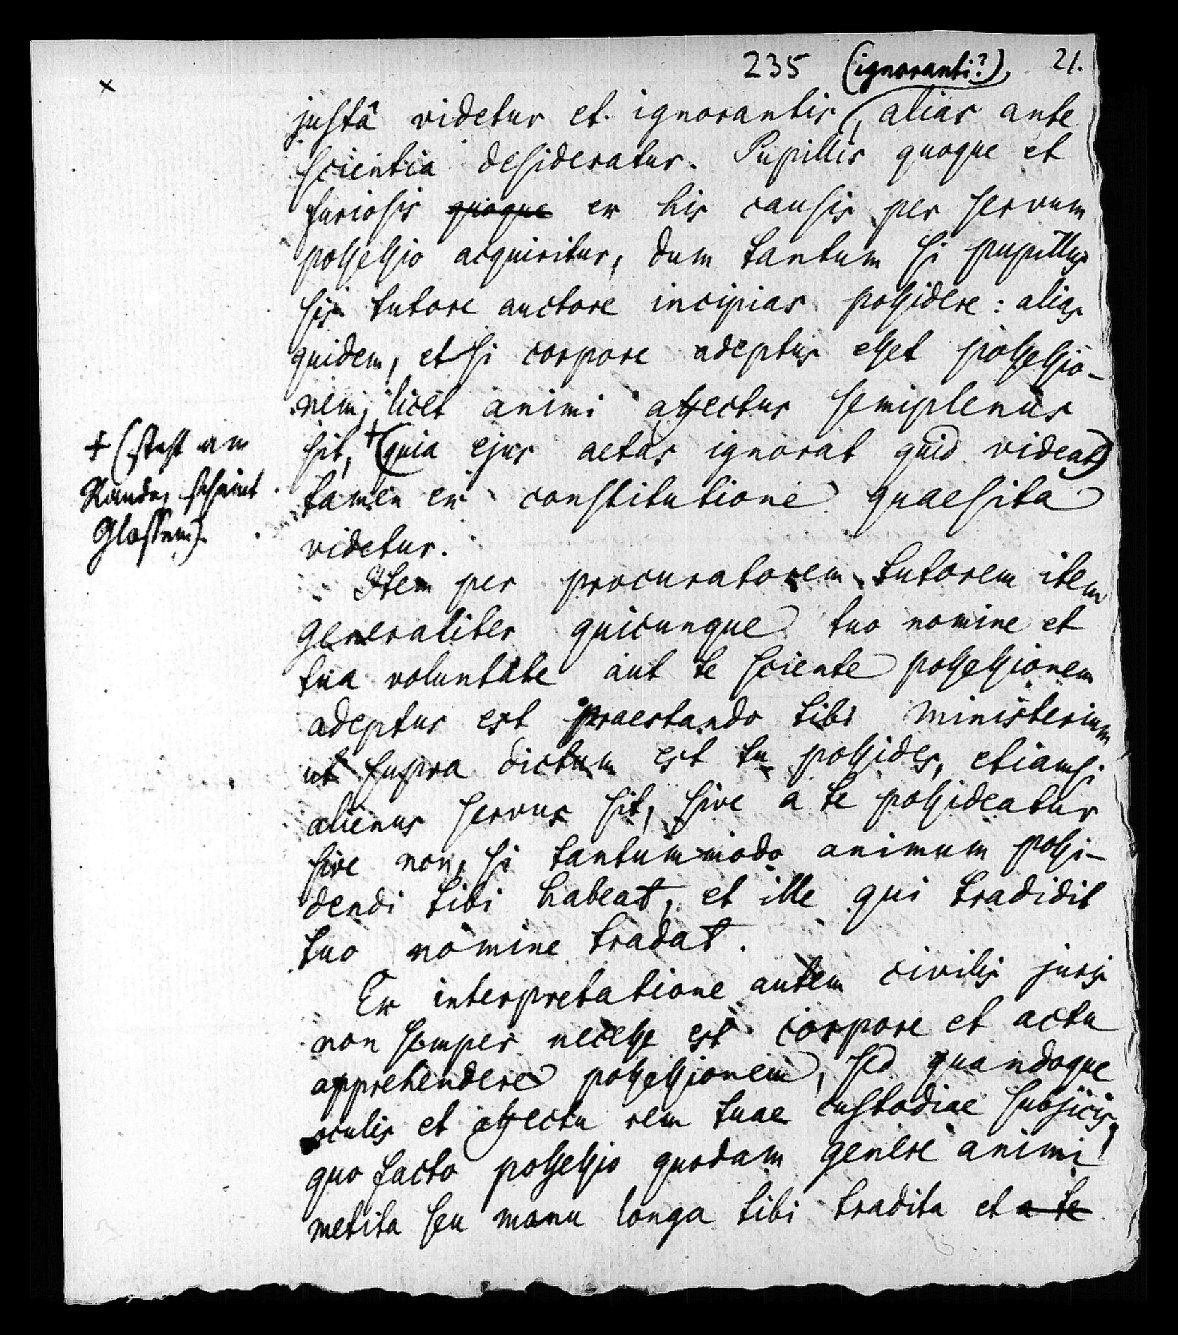 235 (ignoranti?), 21.
justâ videtur et ignorantis, alias ante
scientia desideratur. Pupillis quoque et
furiosis quoque ex his causis per servum
possessio acquiritur, dum tantum si pupillus
sis tutore auctore incipias possidere: alias
quidem, et si corpore adeptus esset possessio-
nem, licet animi affectus semiplenus
sit, + (quia ejus aetas ignorat quid videat)
+ (steht am
Rande, scheint
Glossem).
tamen ex constitutione quaesita
videtur.
Item per procuratorem tutorem item
generaliter quicunque tuo nomine et
tua voluntate aut te sciente possessionem
adeptus est praestando tibi ministerium
ut supra dictum est tu possides, etiamsi
alienus servus sit, sive a te possideatur
sive non, si tantummodo animum possi-
dendi tibi habeat, et ille qui tradidit
tuo nomine tradat.
Ex interpretatione autem civilis juris
non semper necesse est corpore et actu
apprehendere possessionem, sed quandoque
oculis et affectu rem tuae custodiae subjicis,
quo facto possessio quodam genere animi
metita seu manu longa tibi tradita et a te